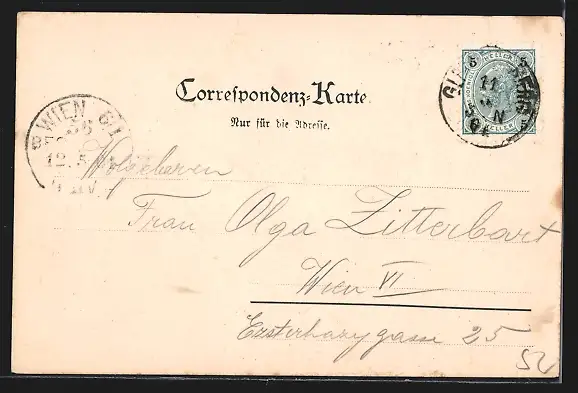 Correspondenz-Karte.
Nur für die Adresse.
WIEN 6/1
12.5
Wolgeboren
Frau Olga Zitterbart
Wien VI
Eszterhazygasse 25
52
5 5
11
N